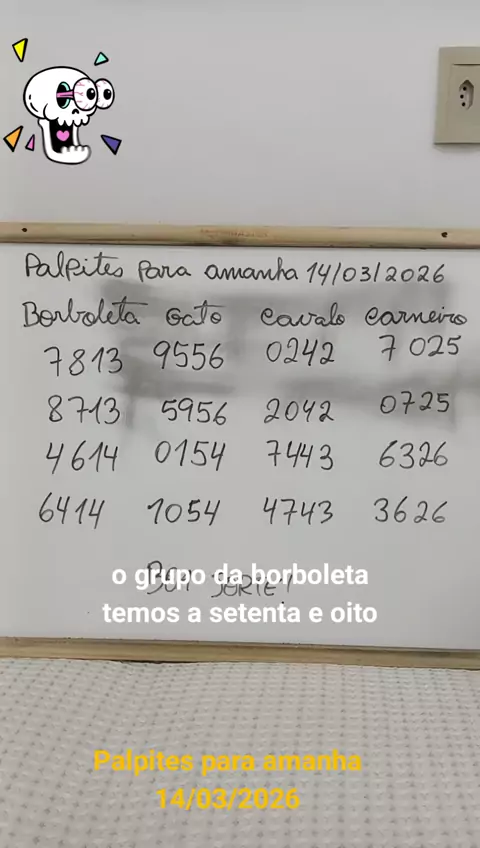 Palpites para amanha 14/03/2026
Borboleta Gato Cavalo Carneiro
7813 9556 0242 7025
8713 5956 2042 0725
4614 0154 7443 6326
6414 1054 4743 3626
BOA SORTE!
o grupo da borboleta
temos a setenta e oito
Palpites para amanha
14/03/2026